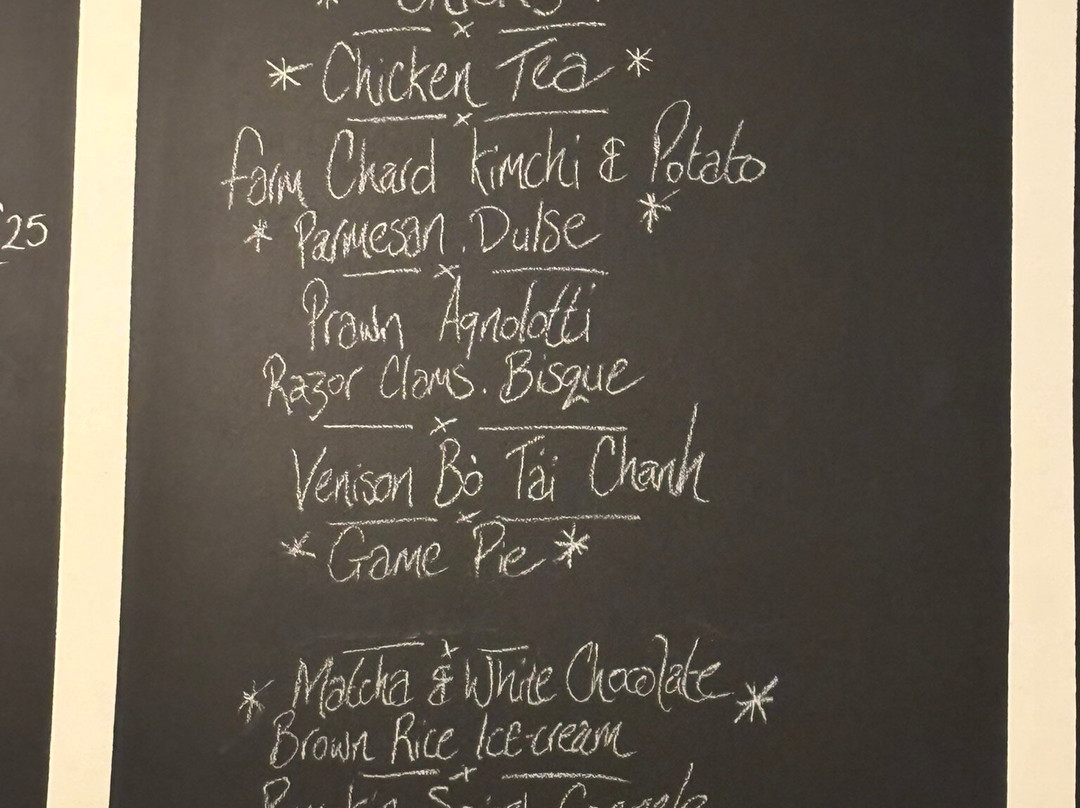 * Snacks *
* Chicken Tea *
Farm Chard Kimchi & Potato
* Parmesan . Dulse *
Prawn Agnolotti
Razor Clams . Bisque
Venison Bò Tái Chanh
* Game Pie *
* Matcha & White Chocolate *
Brown Rice Ice-cream
£25